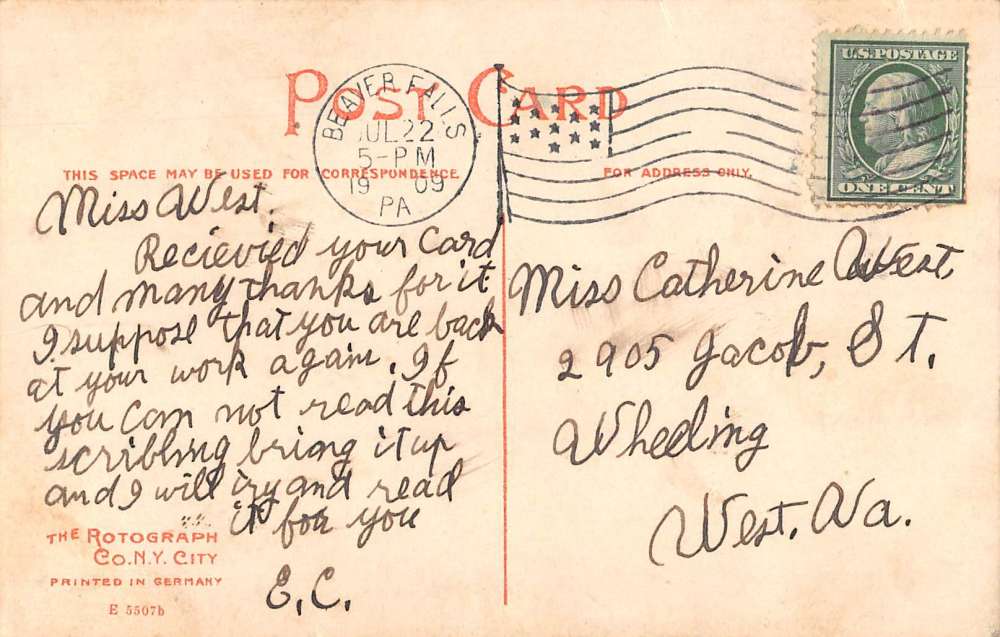 POST CARD
BEAVER FALLS
JUL 22
5-PM
19 09
PA
U.S. POSTAGE
ONE CENT
THIS SPACE MAY BE USED FOR CORRESPONDENCE
FOR ADDRESS ONLY.
Miss West.
Recievied your Card
and many thanks for it
I suppose that you are back
at your work again. If
you can not read this
scribling bring it up
and I will try and read
it for you
E.C.
Miss Catherine West
2905 Jacob, St.
Wheeling
West. Va.
THE ROTOGRAPH
CO. N.Y. CITY
PRINTED IN GERMANY
E 5507b